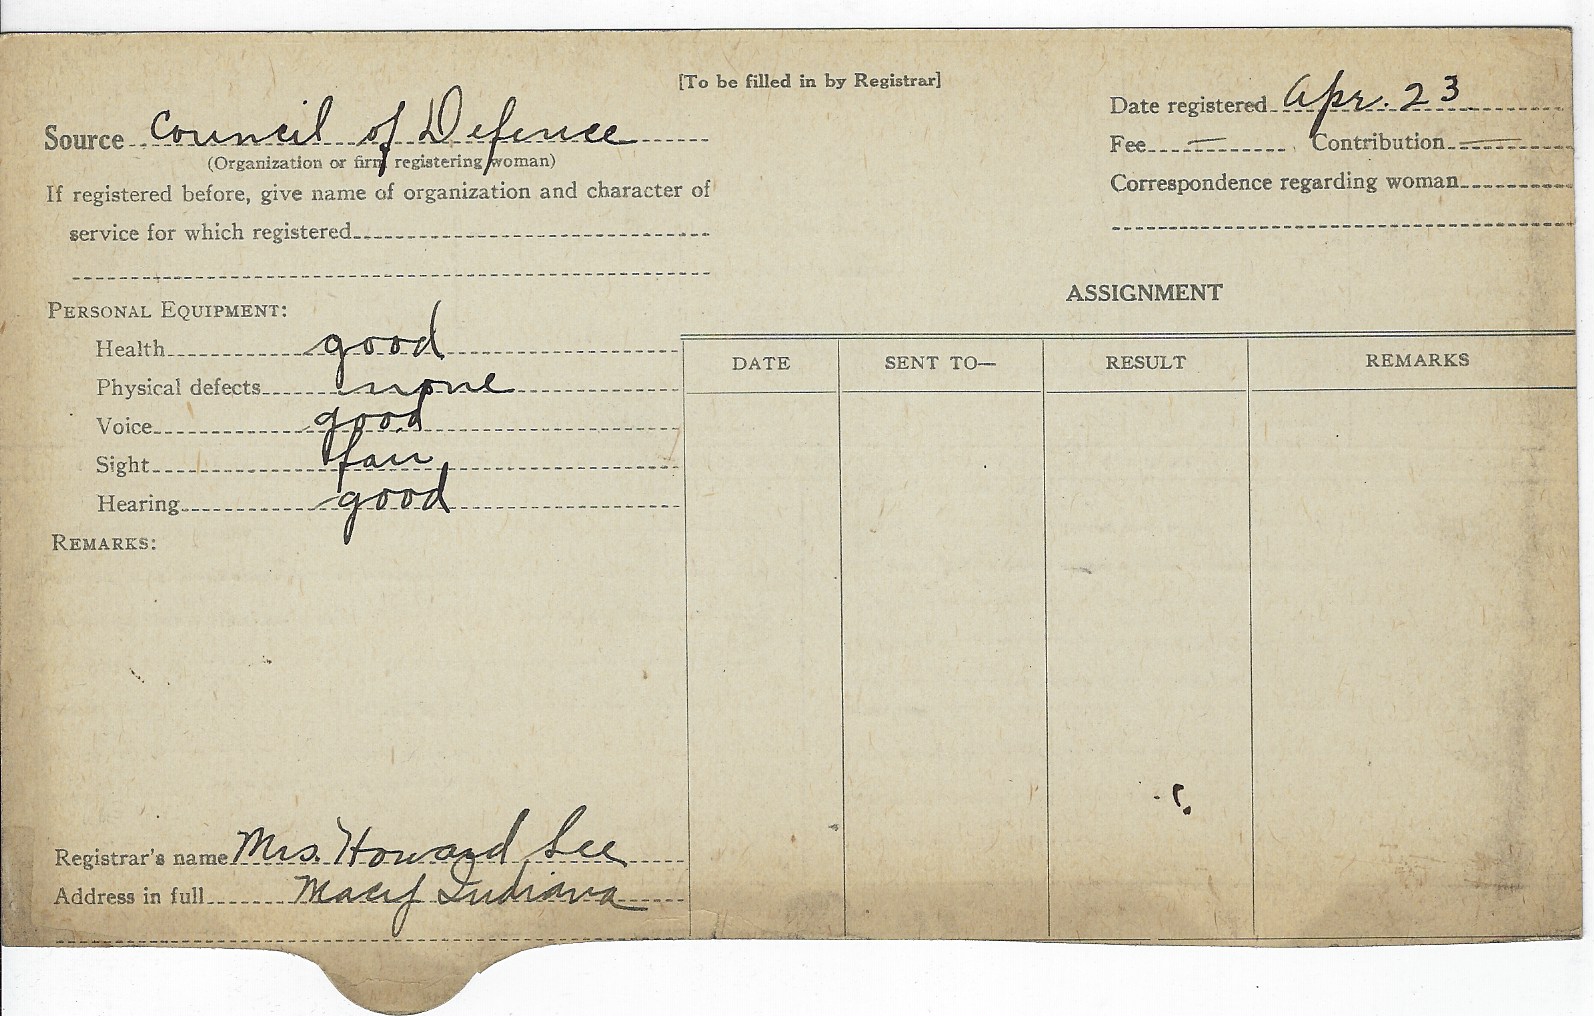 [To be filled in by Registrar]
Source Council of Defence
(Organization or firm registering woman)
If registered before, give name of organization and character of
service for which registered
Date registered Apr. 23
Fee — Contribution —
Correspondence regarding woman
PERSONAL EQUIPMENT:
Health good
Physical defects none
Voice good
Sight fair
Hearing good
REMARKS:
Registrar's name Mrs. Howard Lee
Address in full Macy Indiana
ASSIGNMENT
DATE SENT TO— RESULT REMARKS